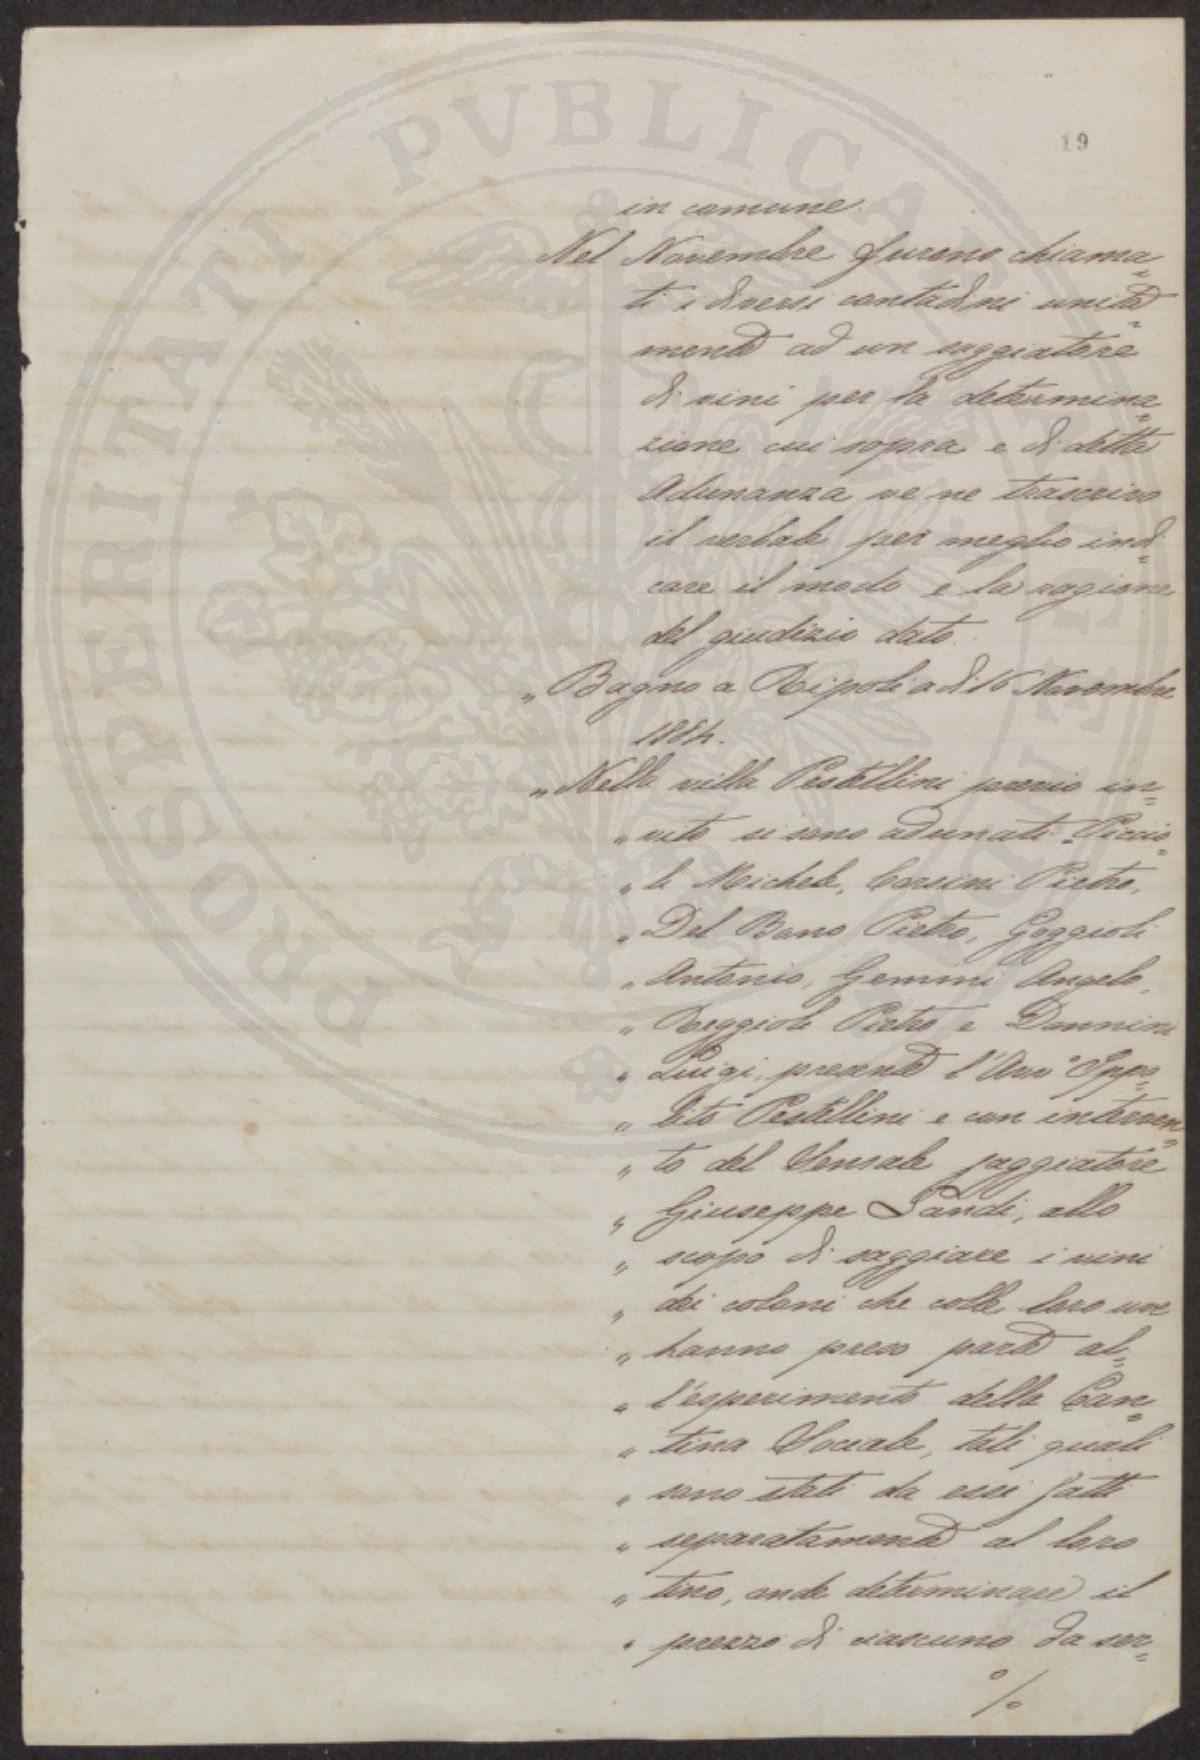 19
in comune.
Nel Novembre furono chiama=
ti i diversi contadini unita=
mente ad un saggiatore
di vini per la determina=
zione cui sopra e di detta
Adunanza ve ne trascrivo
il verbale per meglio indi=
care il modo e la ragione
del giudizio dato.
„ Bagno a Ripoli a dì 16 Novembre
1884.
„ Nella villa Pestellini previo in=
„ vito si sono adunati Piccio=
„ li Michele, Corsini Pietro,
„ Del Bono Pietro, Goggioli
„ Antonio, Gemmi Angelo,
„ Reggioli Pietro e Dannini
„ Luigi, presente l'Avvo Ippo=
„ lito Pestellini e con interven=
„ to del Sensale saggiatore
„ Giuseppe Landi, allo
„ scopo di saggiare i vini
„ dei coloni che colle loro uve
„ hanno preso parte al=
„ l'esperimento della Can=
„ tina Sociale, tali quali
„ sono stati da essi fatti
„ separatamente al loro
„ tino, onde determinare il
„ prezzo di ciascuno da ser=
%
PROSPERITATI PVBLICAE AVGENDAE